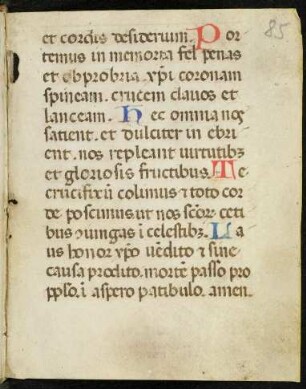 85
et cordis desiderium. Por
temus in memoria fel penas
et obprobria xpi coronam
spineam. crucem clauos et
lanceam. Hec omnia nos
satient. et dulciter in ebri
ent. nos repleant uirtutibꝫ
et gloriosis fructibus. Te
crucifixū colimus ⁊ toto cor
de poscimus ut nos scōꝝ ceti
bus ꝯiungas ī celestibꝫ. La
us honor xpo uēdito ⁊ sine
causa prodito. mortē passo pro
pplo. ī aspero patibulo. amen.